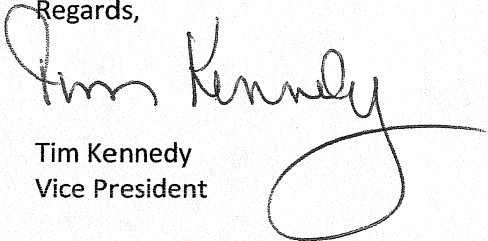 Regards,
Tim Kennedy
Tim Kennedy
Vice President